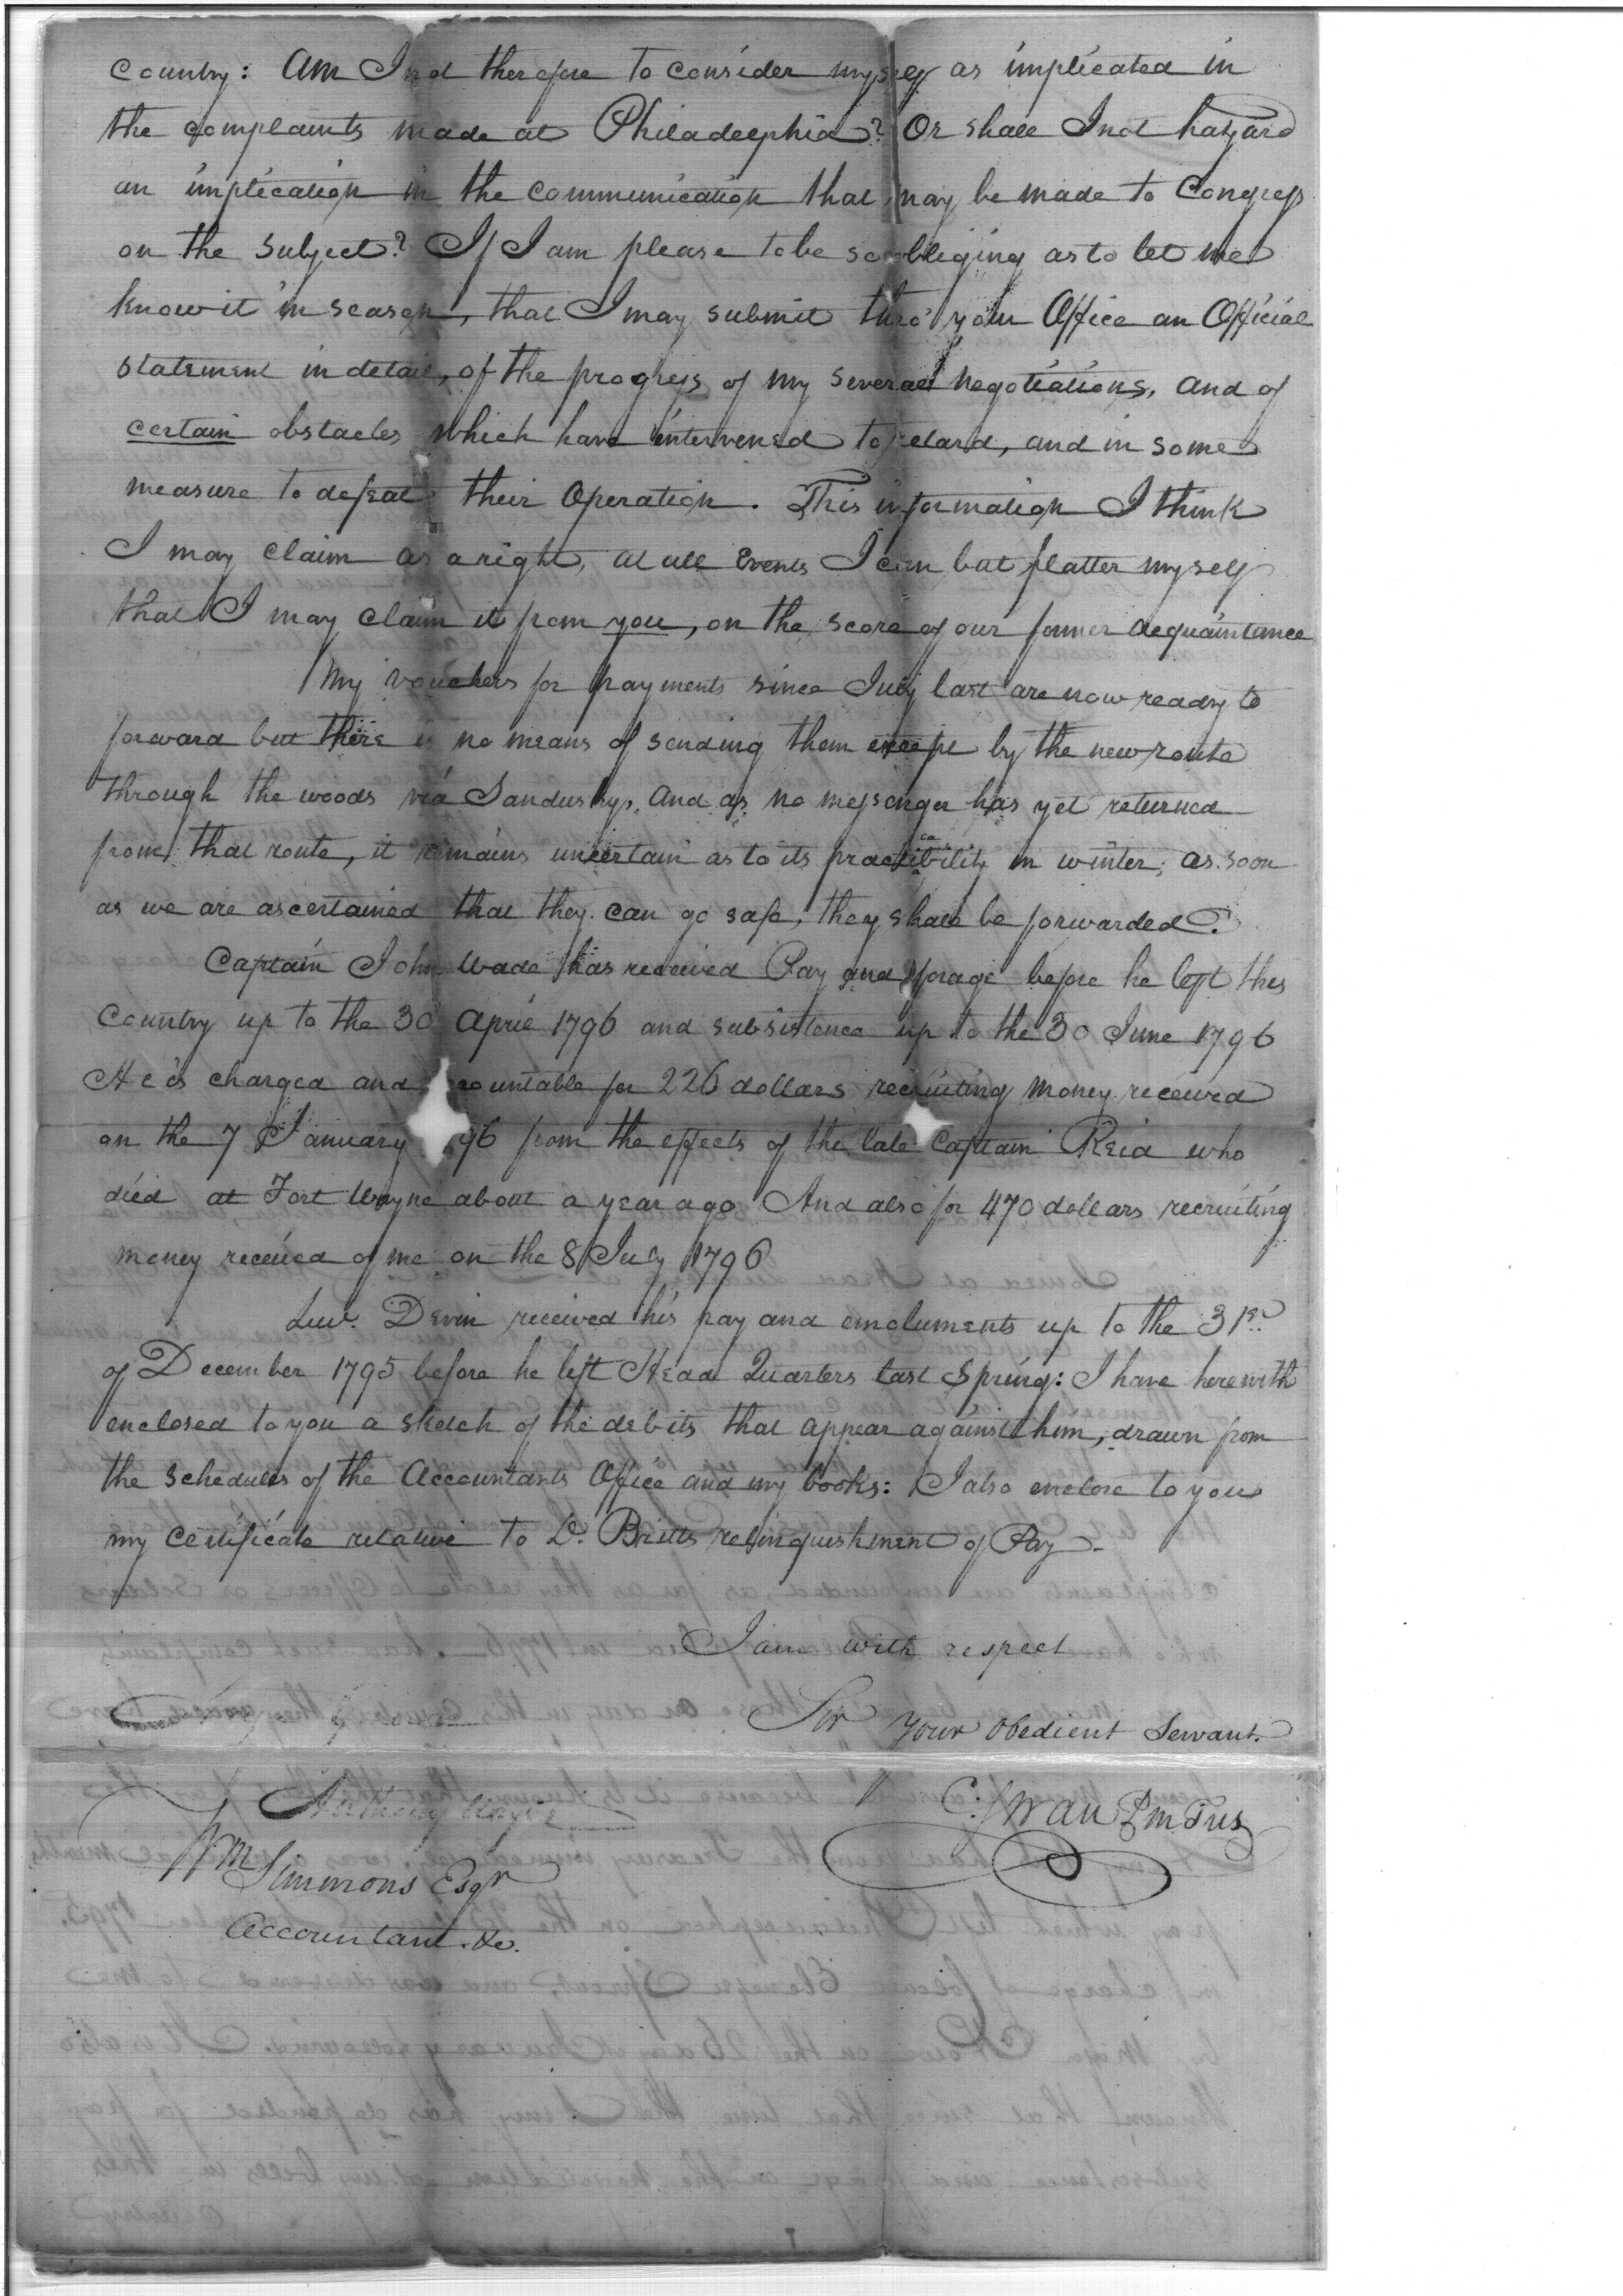 Country: Am I not therefore to consider myself as implicated in
the complaints made at Philadelphia? Or shall I not hazard
an implication in the communication that may be made to Congress
on the subject? If I am please to be so obliging as to let me
know it in season, that I may submit thro' your Office an Official
statement in detail, of the progress of my several negotiations, and of
certain obstacles which have intervened to retard, and in some
measure to defeat their Operation. This information I think
I may claim as a right, at all Events I can but flatter myself
that I may claim it from you, on the score of our former acquaintance
My vouchers for payments since July last are now ready to
forward but there is no means of sending them except by the new route
through the woods via Sandusky, and as no messenger has yet returned
from that route, it remains uncertain as to its practicability in winter; as soon
as we are ascertained that they can go safe, they shall be forwarded.
Captain John Wade has received Pay and forage before he left this
Country up to the 30 April 1796 and subsistence up to the 30 June 1796
He is charged and countable for 226 dollars recruiting money received
on the 7 January 96 from the effects of the late Captain Reid who
died at Fort Wayne about a year ago And also for 470 dollars recruiting
money received of me on the 8 July 1796
Lieu. Devin received his pay and emoluments up to the 31st
of December 1795 before he left Head Quarters last Spring: I have herewith
enclosed to you a sketch of the debits that appear against him, drawn from
the schedules of the Accountants Office and my books: I also enclose to you
my Certificate relative to Dr. Britts relinquishment of Pay.
I am with respect
Sir your Obedient Servant.
C: Swan P.m Tus
Wm Simmons Esqr
Accountant &c.